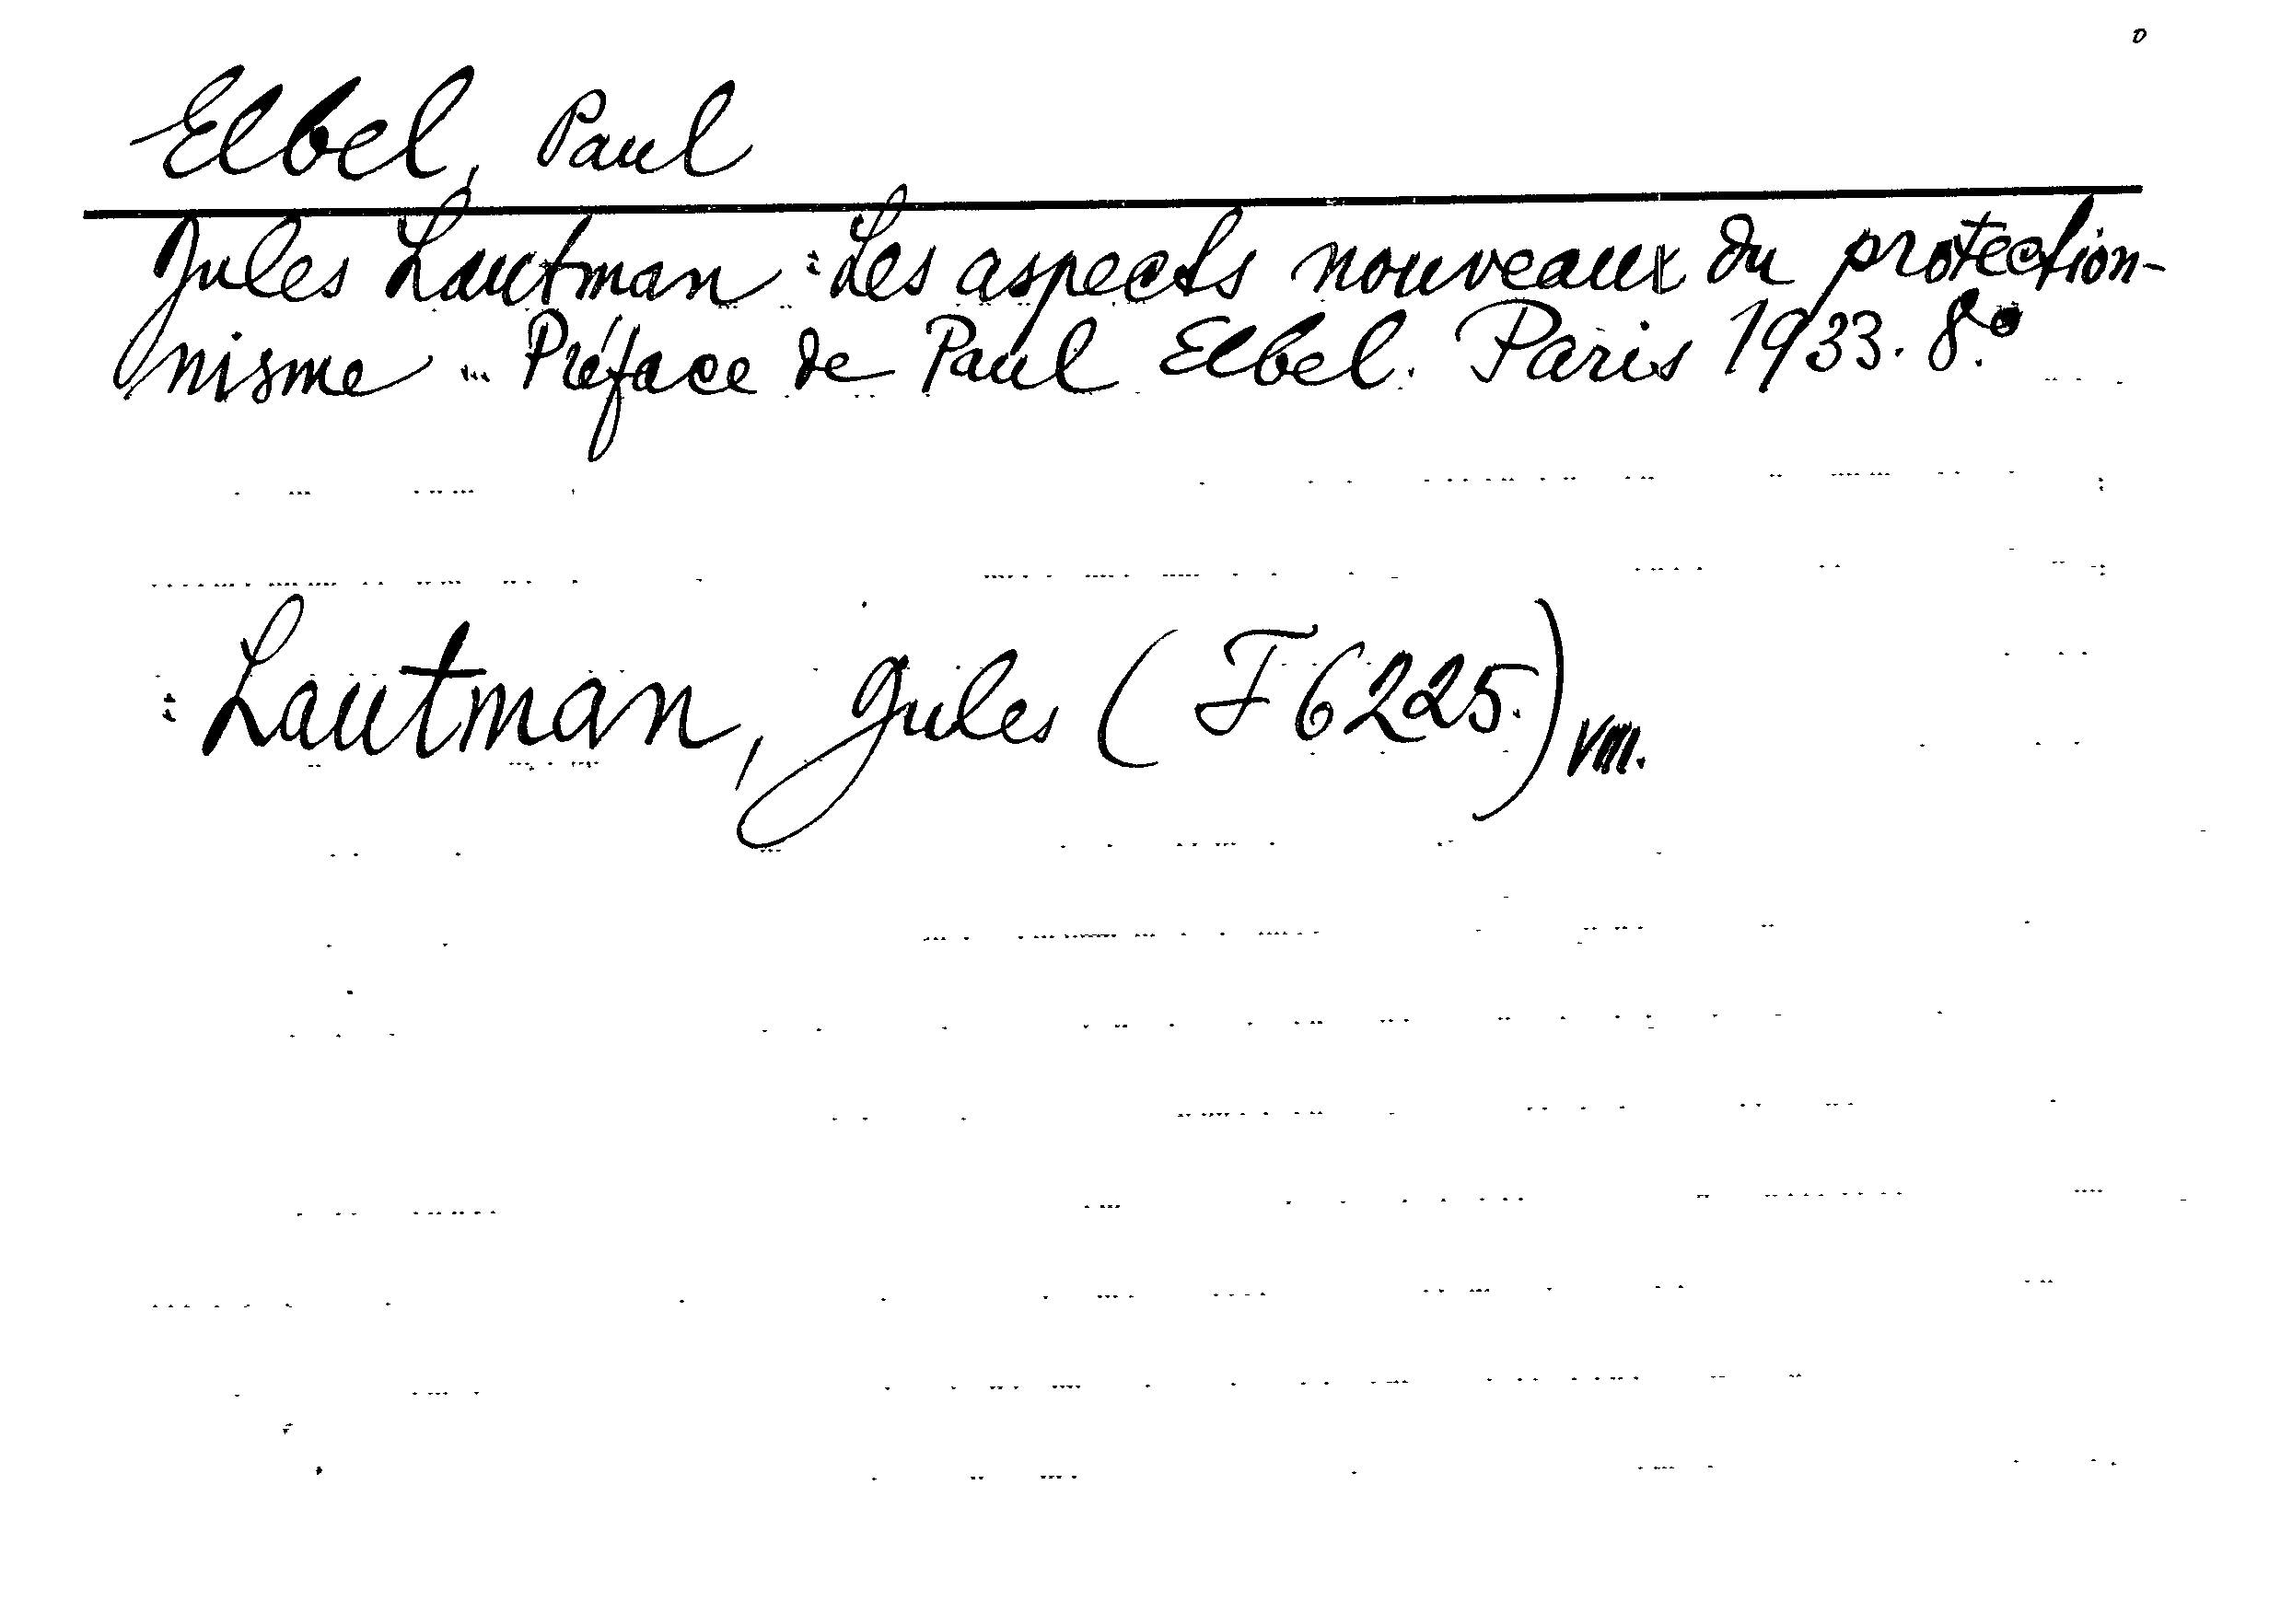 Elbel, Paul
Jules Lautman : Les aspects nouveaux du protection-
nisme ... Préface de Paul Elbel. Paris 1933. 8.°
: Lautman, Jules (F 6225.) VIII.